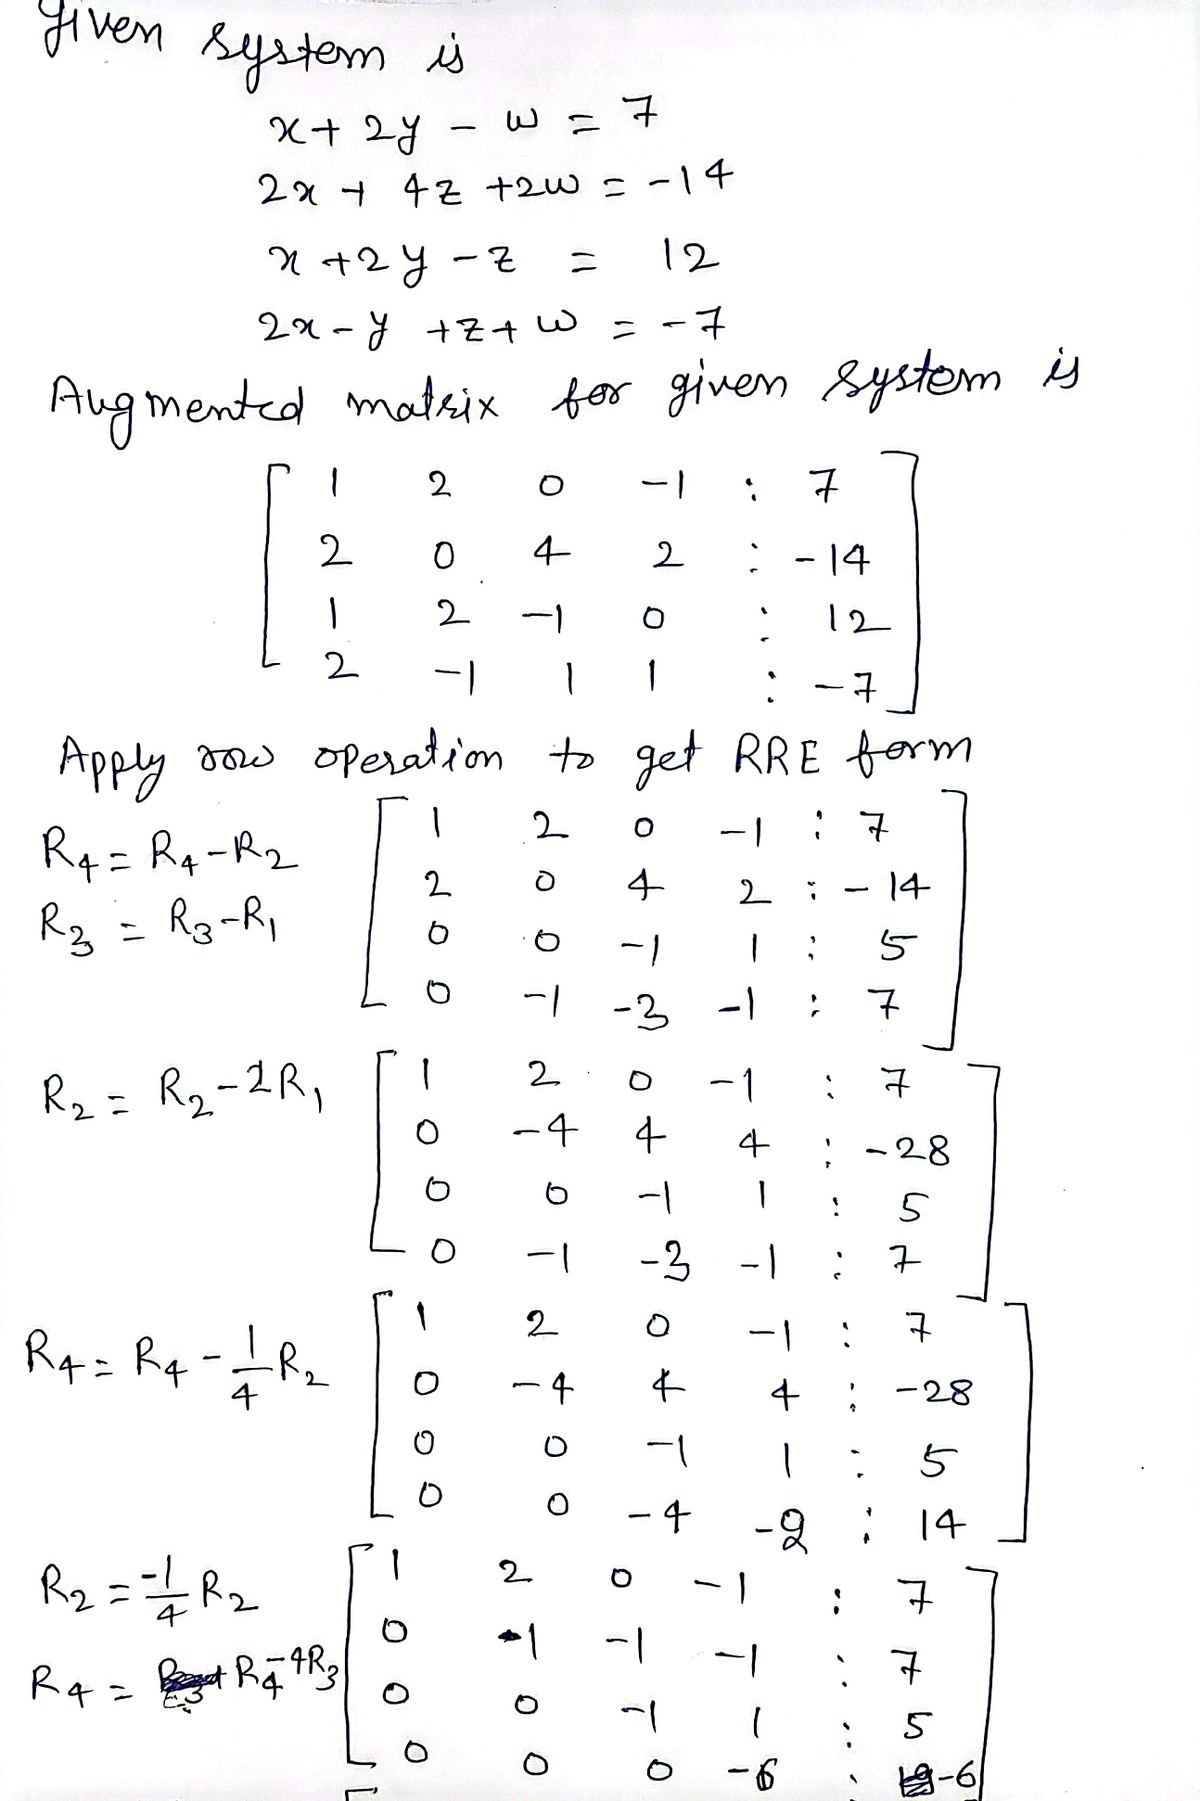 Given system is
x + 2y - w = 7
2x + 4z + 2w = -14
x + 2y - z = 12
2x - y + z + w = -7
Augmented matrix for given system is
1 2 0 -1 : 7
2 0 4 2 : -14
1 2 -1 0 : 12
2 -1 1 1 : -7
Apply row operation to get RRE form
R4 = R4 - R2
R3 = R3 - R1
1 2 0 -1 : 7
2 0 4 2 : -14
0 0 -1 1 : 5
0 -1 -3 -1 : 7
R2 = R2 - 2R1
1 2 0 -1 : 7
0 -4 4 4 : -28
0 0 -1 1 : 5
0 -1 -3 -1 : 7
R4 = R4 - 1/4 R2
1 2 0 -1 : 7
0 -4 4 4 : -28
0 0 -1 1 : 5
0 0 -4 -2 : 14
R2 = -1/4 R2
R4 = R4 - 4R3
1 2 0 -1 : 7
0 1 -1 -1 : 7
0 0 -1 1 : 5
0 0 0 -6 : -6